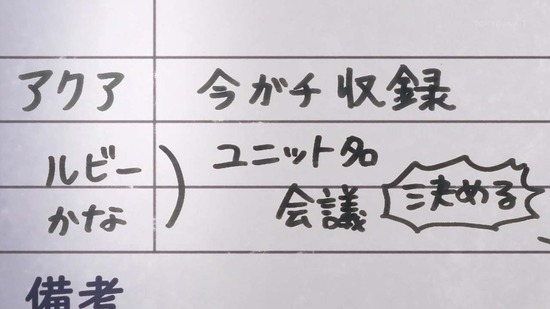 アクア 今ガチ収録
ルビー ユニット名
かな 会議 決める
備考